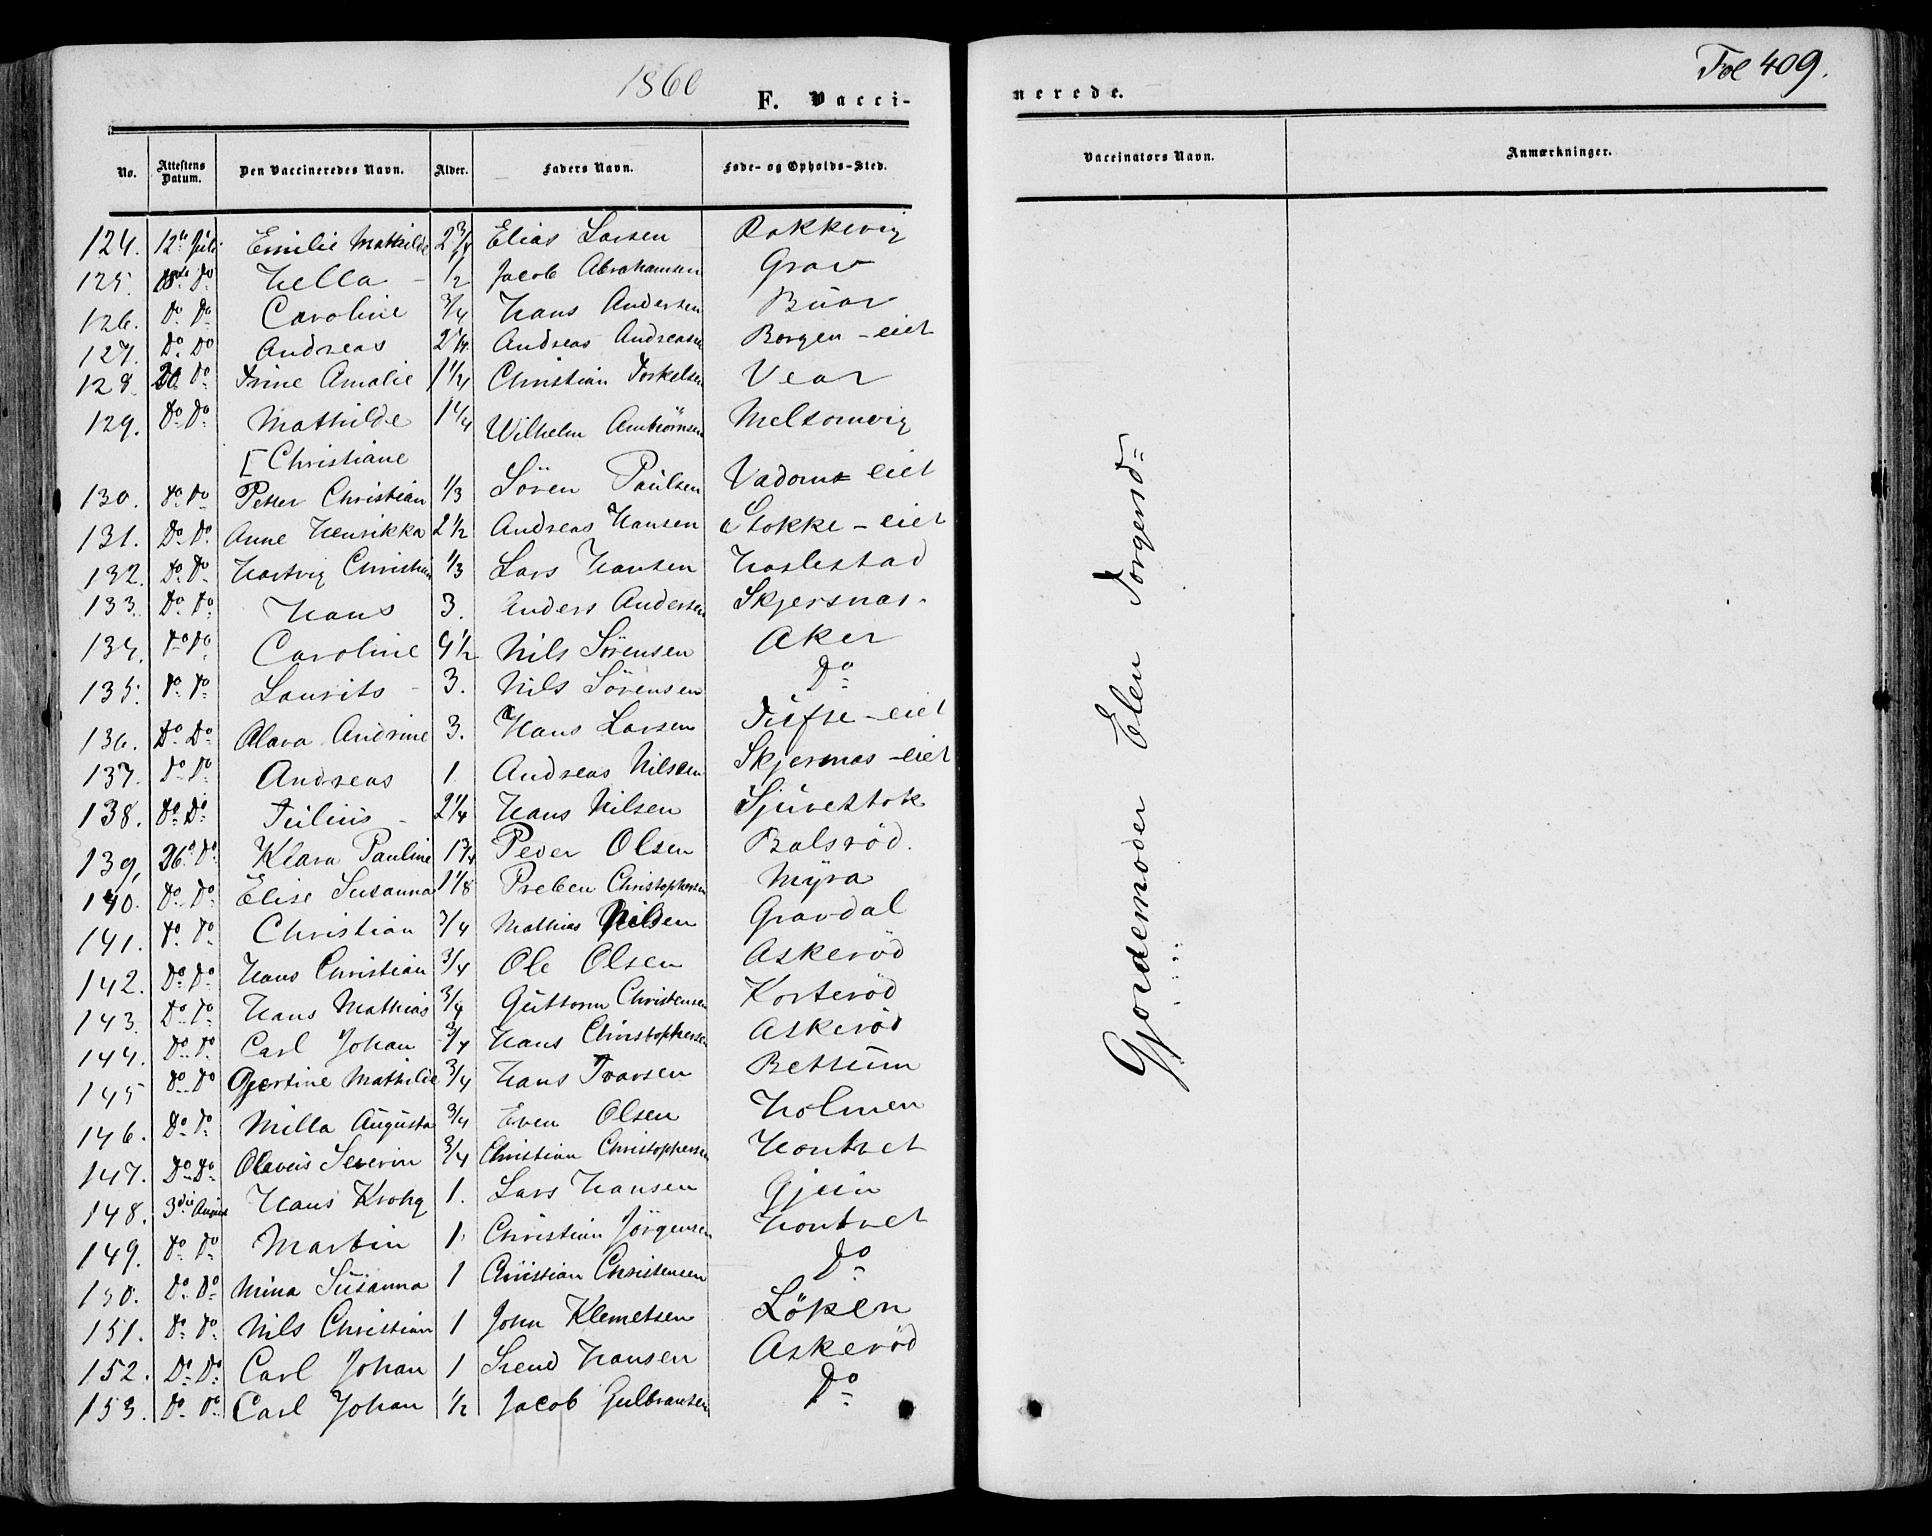 1860
F. Vacci-
nerede.
Fol 409.
No. Attestens Datum. Den Vaccineredes Navn. Alder. Faders Navn. Føde- og Opholds-Sted. Vaccinators Navn. Anmærkninger.
124. 12te Juli Emilie Mathilde 2 3/4 Elias Larsen Rakkevig
125. 18de Do Hella - 1/2 Jacob Abrahamsen Grav
126. Do Do Caroline 3/4 Hans Andersen Buar
127. Do Do Andreas 2 1/4 Andreas Andreasen Borgen - eiet
128. 20 Do Trine Amalie 1 1/4 Christian Torkelsen Vear
129. Do Do Mathilde 1 1/4 Wilhelm Ambiørnsen Melsomvig
[Christiane
130. Do Do Petter Christian 1/3 Sören Paulsen Vadoms eiet
131. Do Do Anne Henrikka 2 1/2 Andreas Hansen Stokke - eiet
132. Do Do Hartvig Christian 1/3 Lars Hansen Haslestad
133. Do Do Hans 3. Anders Andersen Skjersnas.
134. Do Do Caroline 4 1/2 Nils Sørensen Aker
135. Do Do Laurits - 3. Nils Sørensen Do
136. Do Do Clara Andrine 3. Hans Larsen Tufte - eiet
137. Do Do Andreas 1 Andreas Nilsen Skjersnas - eiet
138. Do Do Julius - 2 1/4 Hans Nilsen Sjuestok
139, 26 Do Klara Pauline 1 3/4 Peder Olsen Balsröd.
140. Do Do Elise Susanna 1 1/8 Preben Christophersen Myra
141. Do Do Christian 3/4 Mathias Nilsen Gravdal
142. Do Do Hans Christian 3/4 Ole Olsen Askeröd
143. Do Do Hans Mathias 3/4 Guttorm Christensen Korteröd
144. Do Do Carl Johan 3/4 Hans Christophersen Askeröd
145 Do Do Gjertine Mathilie 3/4 Hans Ivarsen Bettum
146. Do Do Milla Augusta 3/4 Even Olsen Holmen
147. Do Do Olavus Severin 3/4 Christian Christophersen Hontvet
148. 3die August Hans Krohg 1. Lars Hansen Gjein
149. Do Do Martin 1. Christian Jörgensen Hontvet
150. Do Do Mina Susanna 1 Christian Christensen Do
151. Do Do Nils Christian 1 John Klemetsen Löken
152. Do Do Carl Johan 1 Svend Hansen Askeröd
153. Do Do Carl Johan 1/2 Jacob Gulbransen Do
Gjordemoder Elen Torgersd